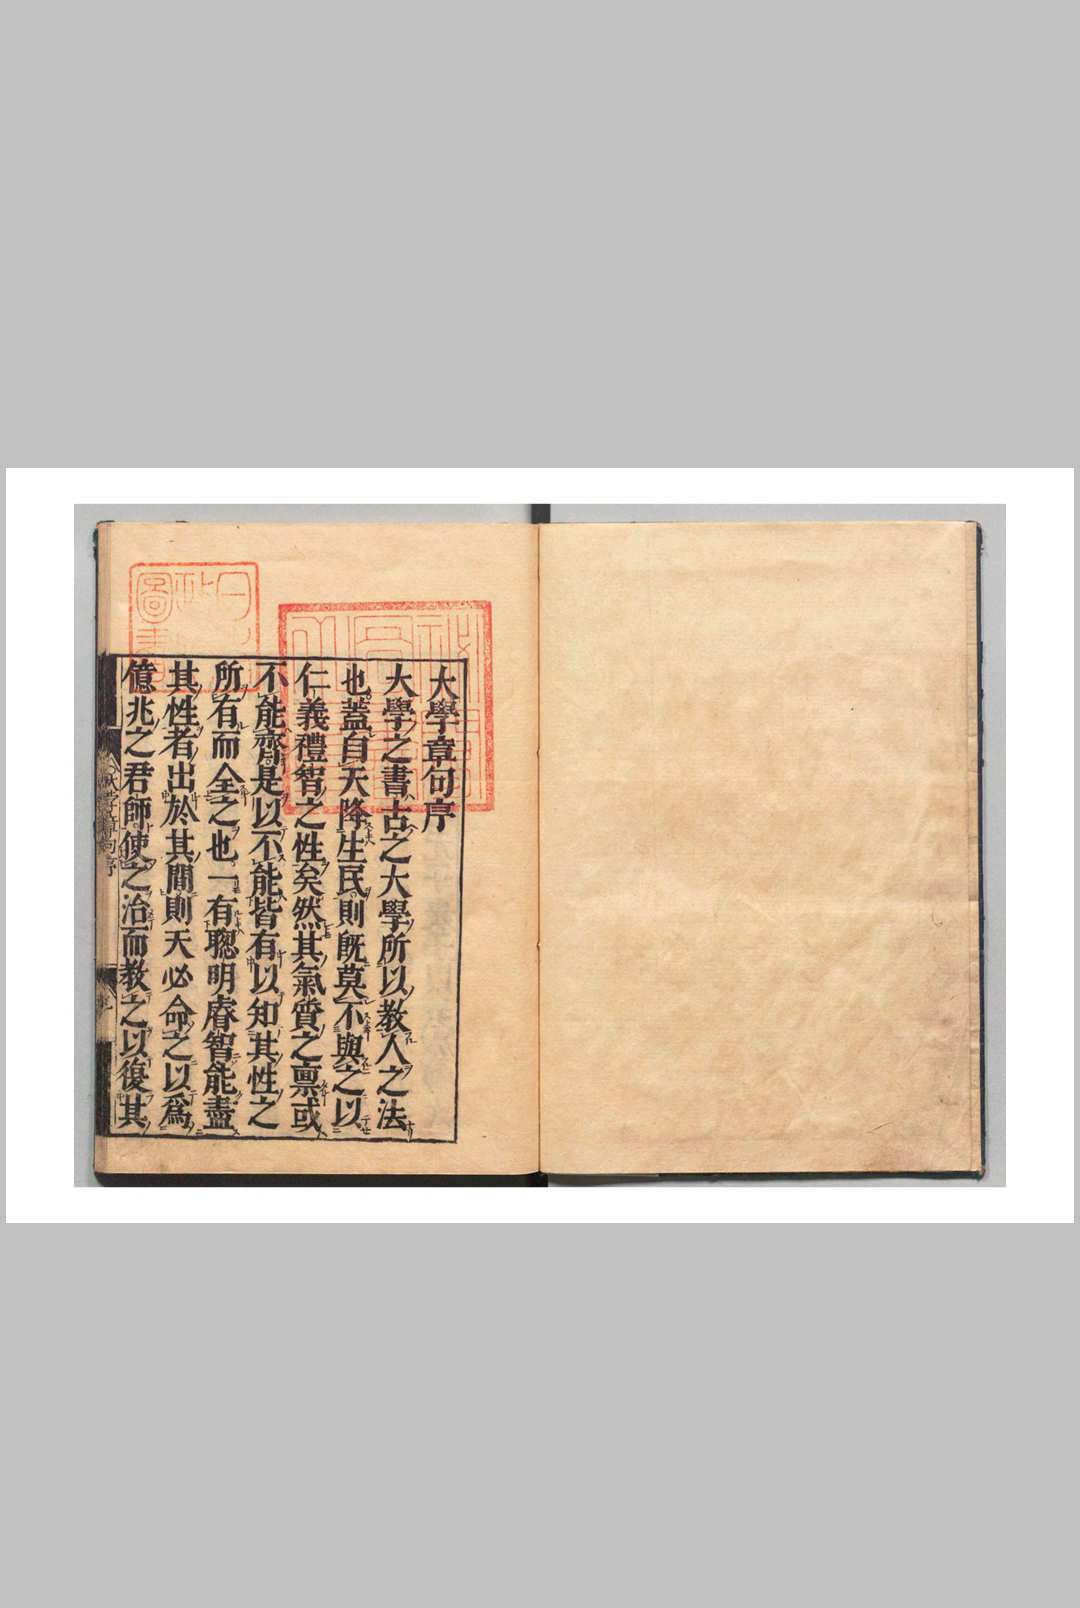 大學章句序
大學之書古之大學所以教人之法
也蓋自天降生民則既莫不與之以
仁義禮智之性矣然其氣質之稟或
不能齊是以不能皆有以知其性之
所有而全之也一有聰明睿智能盡
其性者出於其間則天必命之以爲
億兆之君師使之治而教之以復其
大學章句序